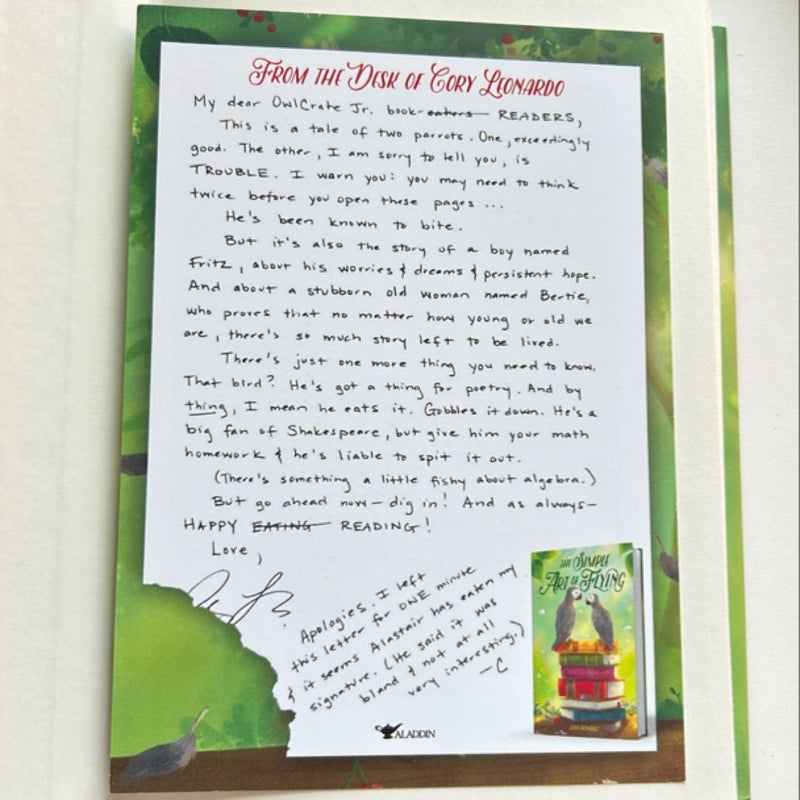 FROM THE DESK OF CORY LEONARDO
My dear OwlCrate Jr. book-eaters READERS,
This is a tale of two parrots. One, exceedingly
good. The other, I am sorry to tell you, is
TROUBLE. I warn you: you may need to think
twice before you open these pages ...
He's been known to bite.
But it's also the story of a boy named
Fritz, about his worries & dreams & persistent hope.
And about a stubborn old woman named Bertie,
who proves that no matter how young or old we
are, there's so much story left to be lived.
There's just one more thing you need to know.
That bird? He's got a thing for poetry. And by
thing, I mean he eats it. Gobbles it down. He's a
big fan of Shakespeare, but give him your math
homework & he's liable to spit it out.
(There's something a little fishy about algebra.)
But go ahead now — dig in! And as always —
HAPPY EATING READING!
Love,
Apologies. I left
this letter for ONE minute
& it seems Alastair has eaten my
signature. (He said it was
bland & not at all
very interesting.)
—C
THE SIMPLE
ART OF FLYING
CORY LEONARDO
ALADDIN